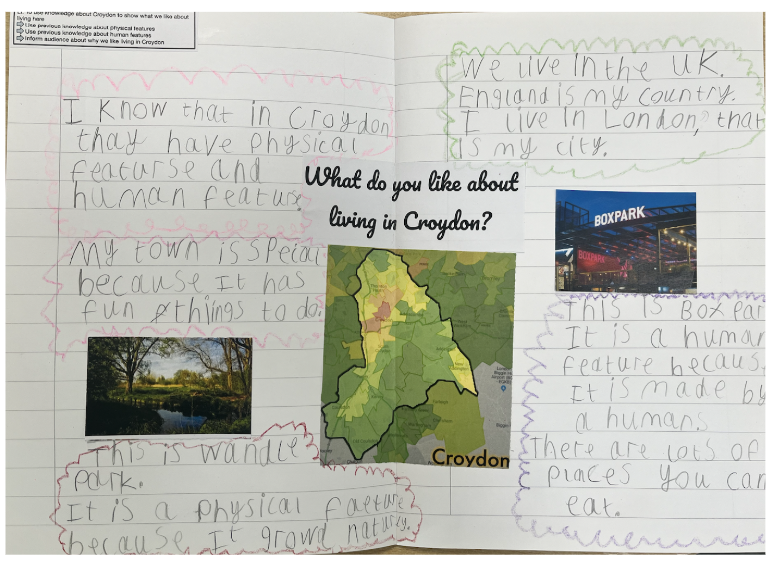 to use knowledge about Croydon to show what we like about
living here
Use previous knowledge about physical features
Use previous knowledge about human features
Inform audience about why we like living in Croydon
I know that in Croydon
thay have physical
featurse and
human feature
My town is
because It has
fun thiings to do.
This is
park.
It is a physical
because It
What do you like about
living in Croydon?
Croydon
We live in the UK.
England is my country.
I live in London, that
is my city.
BOXPARK
BOXPARK
This is Box Par
It is a human
feature becaus
It is made by
a humans
There are lots of
places you can
eat.